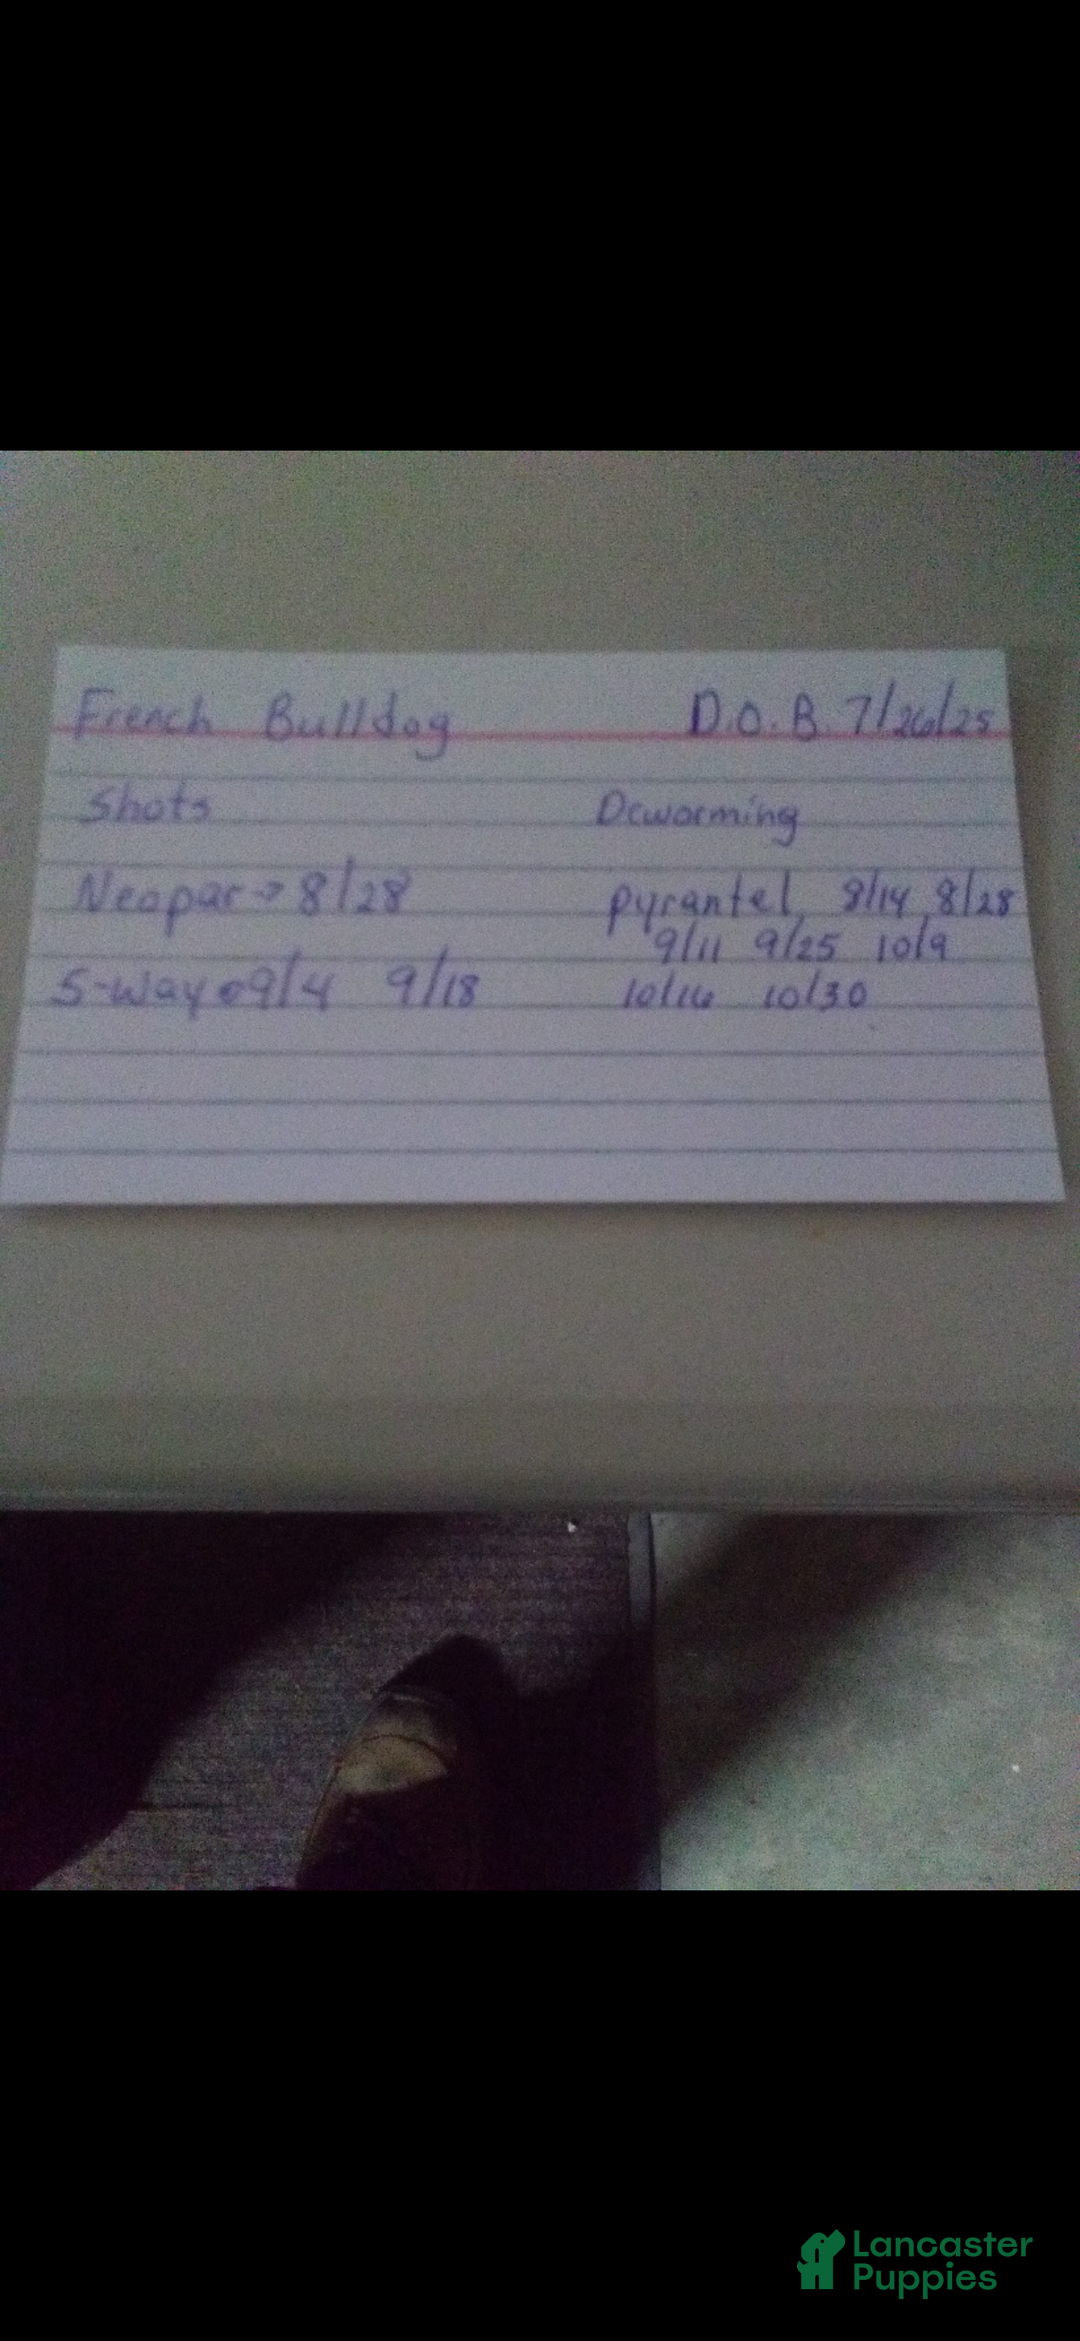 French Bulldog D.O.B. 7/26/25
Shots Deworming
Neopar → 8/28 pyrantel, 8/14, 8/28
9/11 9/25 10/9
5-way → 9/4 9/18 10/16 10/30
Lancaster
Puppies